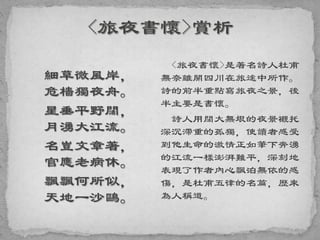 <旅夜書懷>賞析
細草微風岸，
危檣獨夜舟。
星垂平野闊，
月湧大江流。
名豈文章著，
官應老病休。
飄飄何所似，
天地一沙鷗。
<旅夜書懷>是著名詩人杜甫
無奈離開四川在旅途中所作。
詩的前半重點寫旅夜之景，後
半主要是書懷。
詩人用闊大無垠的夜景襯托
深沉滯重的孤獨，使讀者感受
到他生命的激情正如筆下奔湧
的江流一樣澎湃難平，深刻地
表現了作者內心飄泊無依的感
傷，是杜甫五律的名篇，歷來
為人稱道。